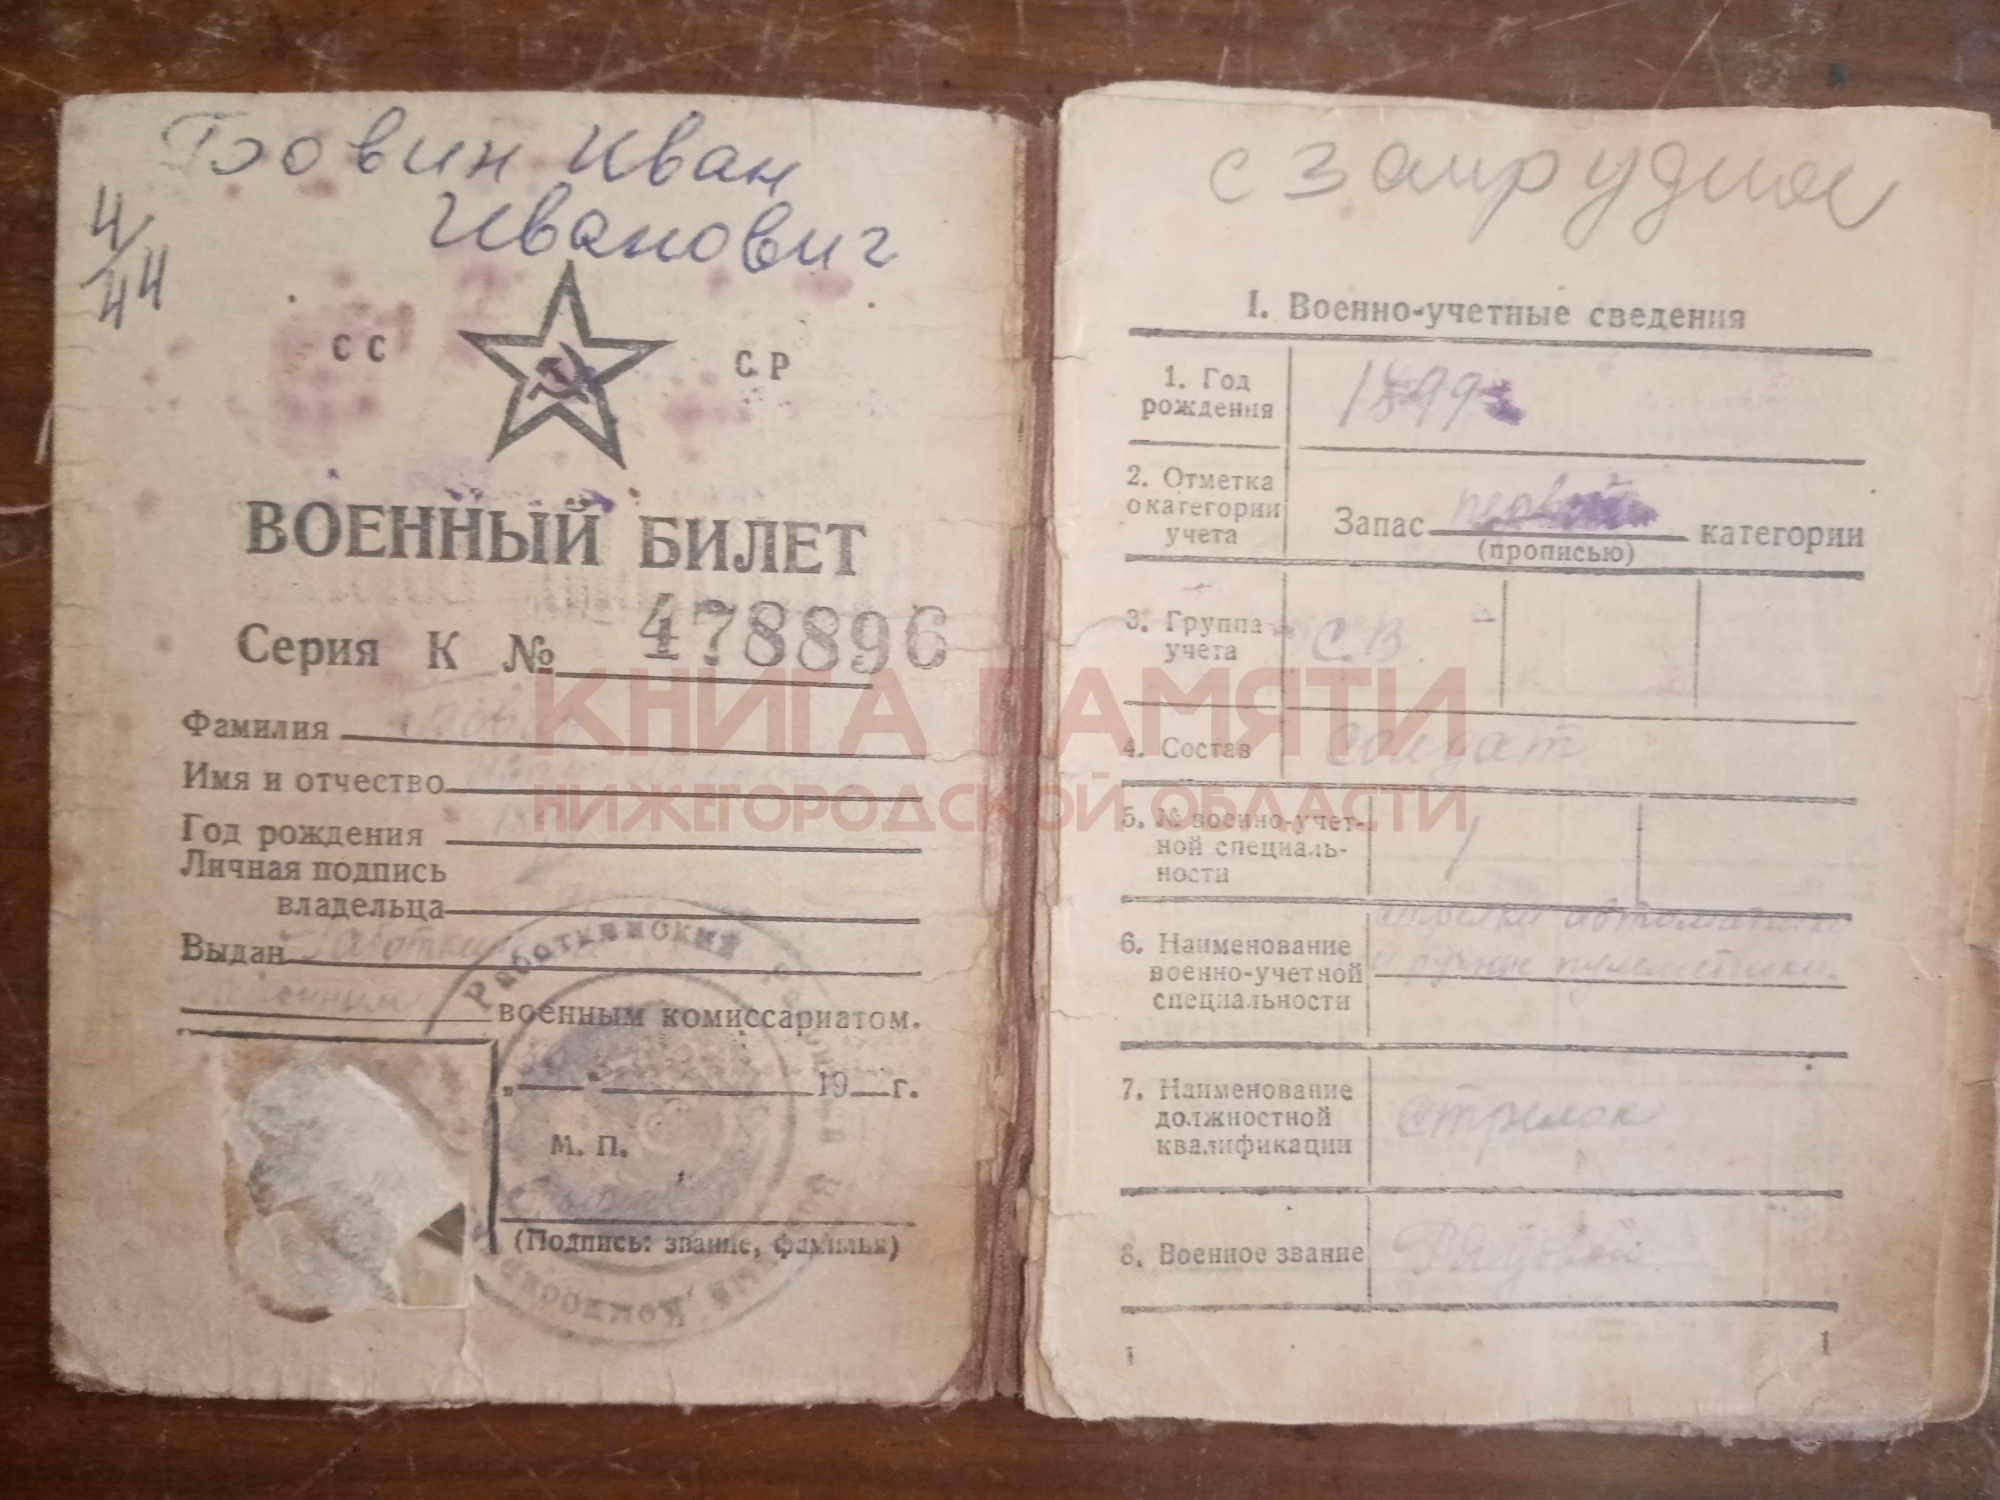 Гловин Иван
Иванович
4/44
СС СР
ВОЕННЫЙ БИЛЕТ
Серия К № 478896
Фамилия
Имя и отчество
Год рождения
Личная подпись
владельца
Выдан Работкинский
районным военным комиссариатом.
„ “ 19 г.
М. П.
(Подпись: звание, фамилия)
Работкинский Районный Военный Комиссариат
с Запрудное
I. Военно-учетные сведения
1. Год
рождения
1899
2. Отметка
о категории
учета
Запас первой категории
(прописью)
3. Группа
учета
С.В.
4. Состав солдат
5. № военно-учет-
ной специаль-
ности
1
6. Наименование
военно-учетной
специальности
стрелки автоматчики
и ручные пулеметчики.
7. Наименование
должностной
квалификации
стрелок
8. Военное звание Рядовой
1
1
КНИГА ПАМЯТИ
НИЖЕГОРОДСКОЙ ОБЛАСТИ